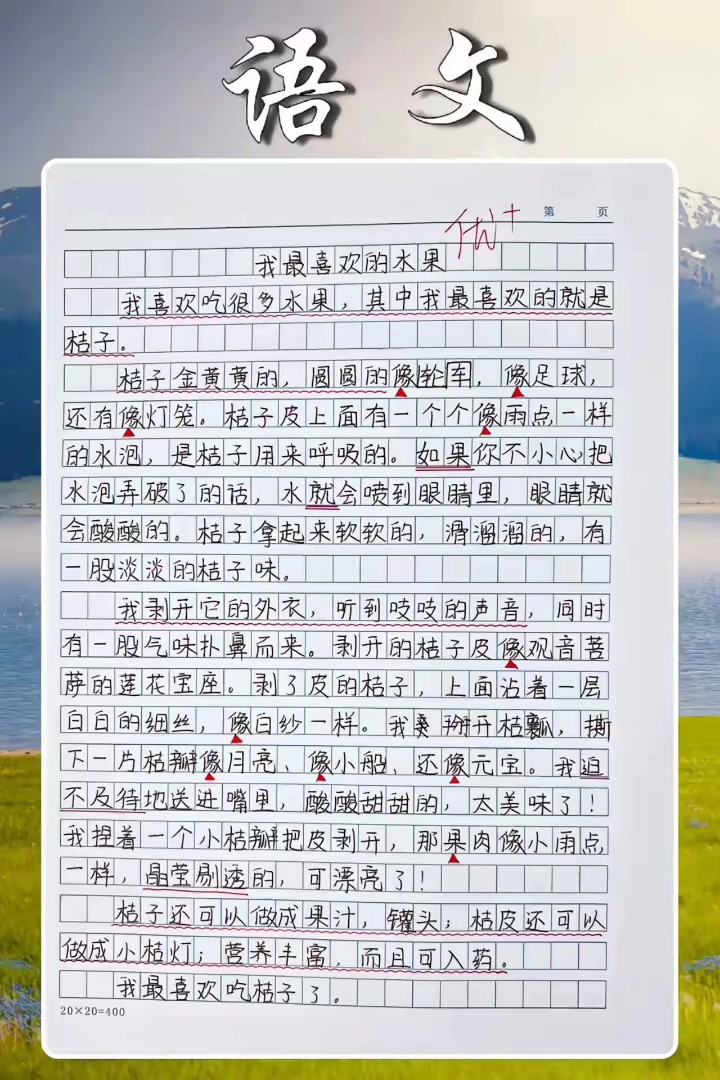 语文
优+
第 页
我最喜欢的水果
我喜欢吃很多水果，其中我最喜欢的就是
桔子。
桔子金黄黄的，圆圆的像轮车，像足球，
还有像灯笼。桔子皮上面有一个个像雨点一样
的水泡，是桔子用来呼吸的。如果你不小心把
水泡弄破了的话，水就会喷到眼睛里，眼睛就
会酸酸的。桔子拿起来软软的，滑溜溜的，有
一股淡淡的桔子味。
我剥开它的外衣，听到吱吱的声音，同时
有一股气味扑鼻而来。剥开的桔子皮像观音菩
萨的莲花宝座。剥了皮的桔子，上面沾着一层
白白的细丝，像白纱一样。我 掰开桔瓤，撕
下一片桔瓣像月亮、像小船、还像元宝。我迫
不及待地送进嘴里，酸酸甜甜的，太美味了！
我捏着一个小桔瓣把皮剥开，那果肉像小雨点
一样，晶莹剔透的，可漂亮了！
桔子还可以做成果汁，罐头；桔皮还可以
做成小桔灯；营养丰富，而且可入药。
我最喜欢吃桔子了。
20×20=400